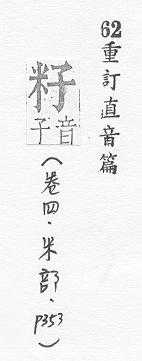 62重訂直音篇
籽
音子
(卷四·米部·p353)